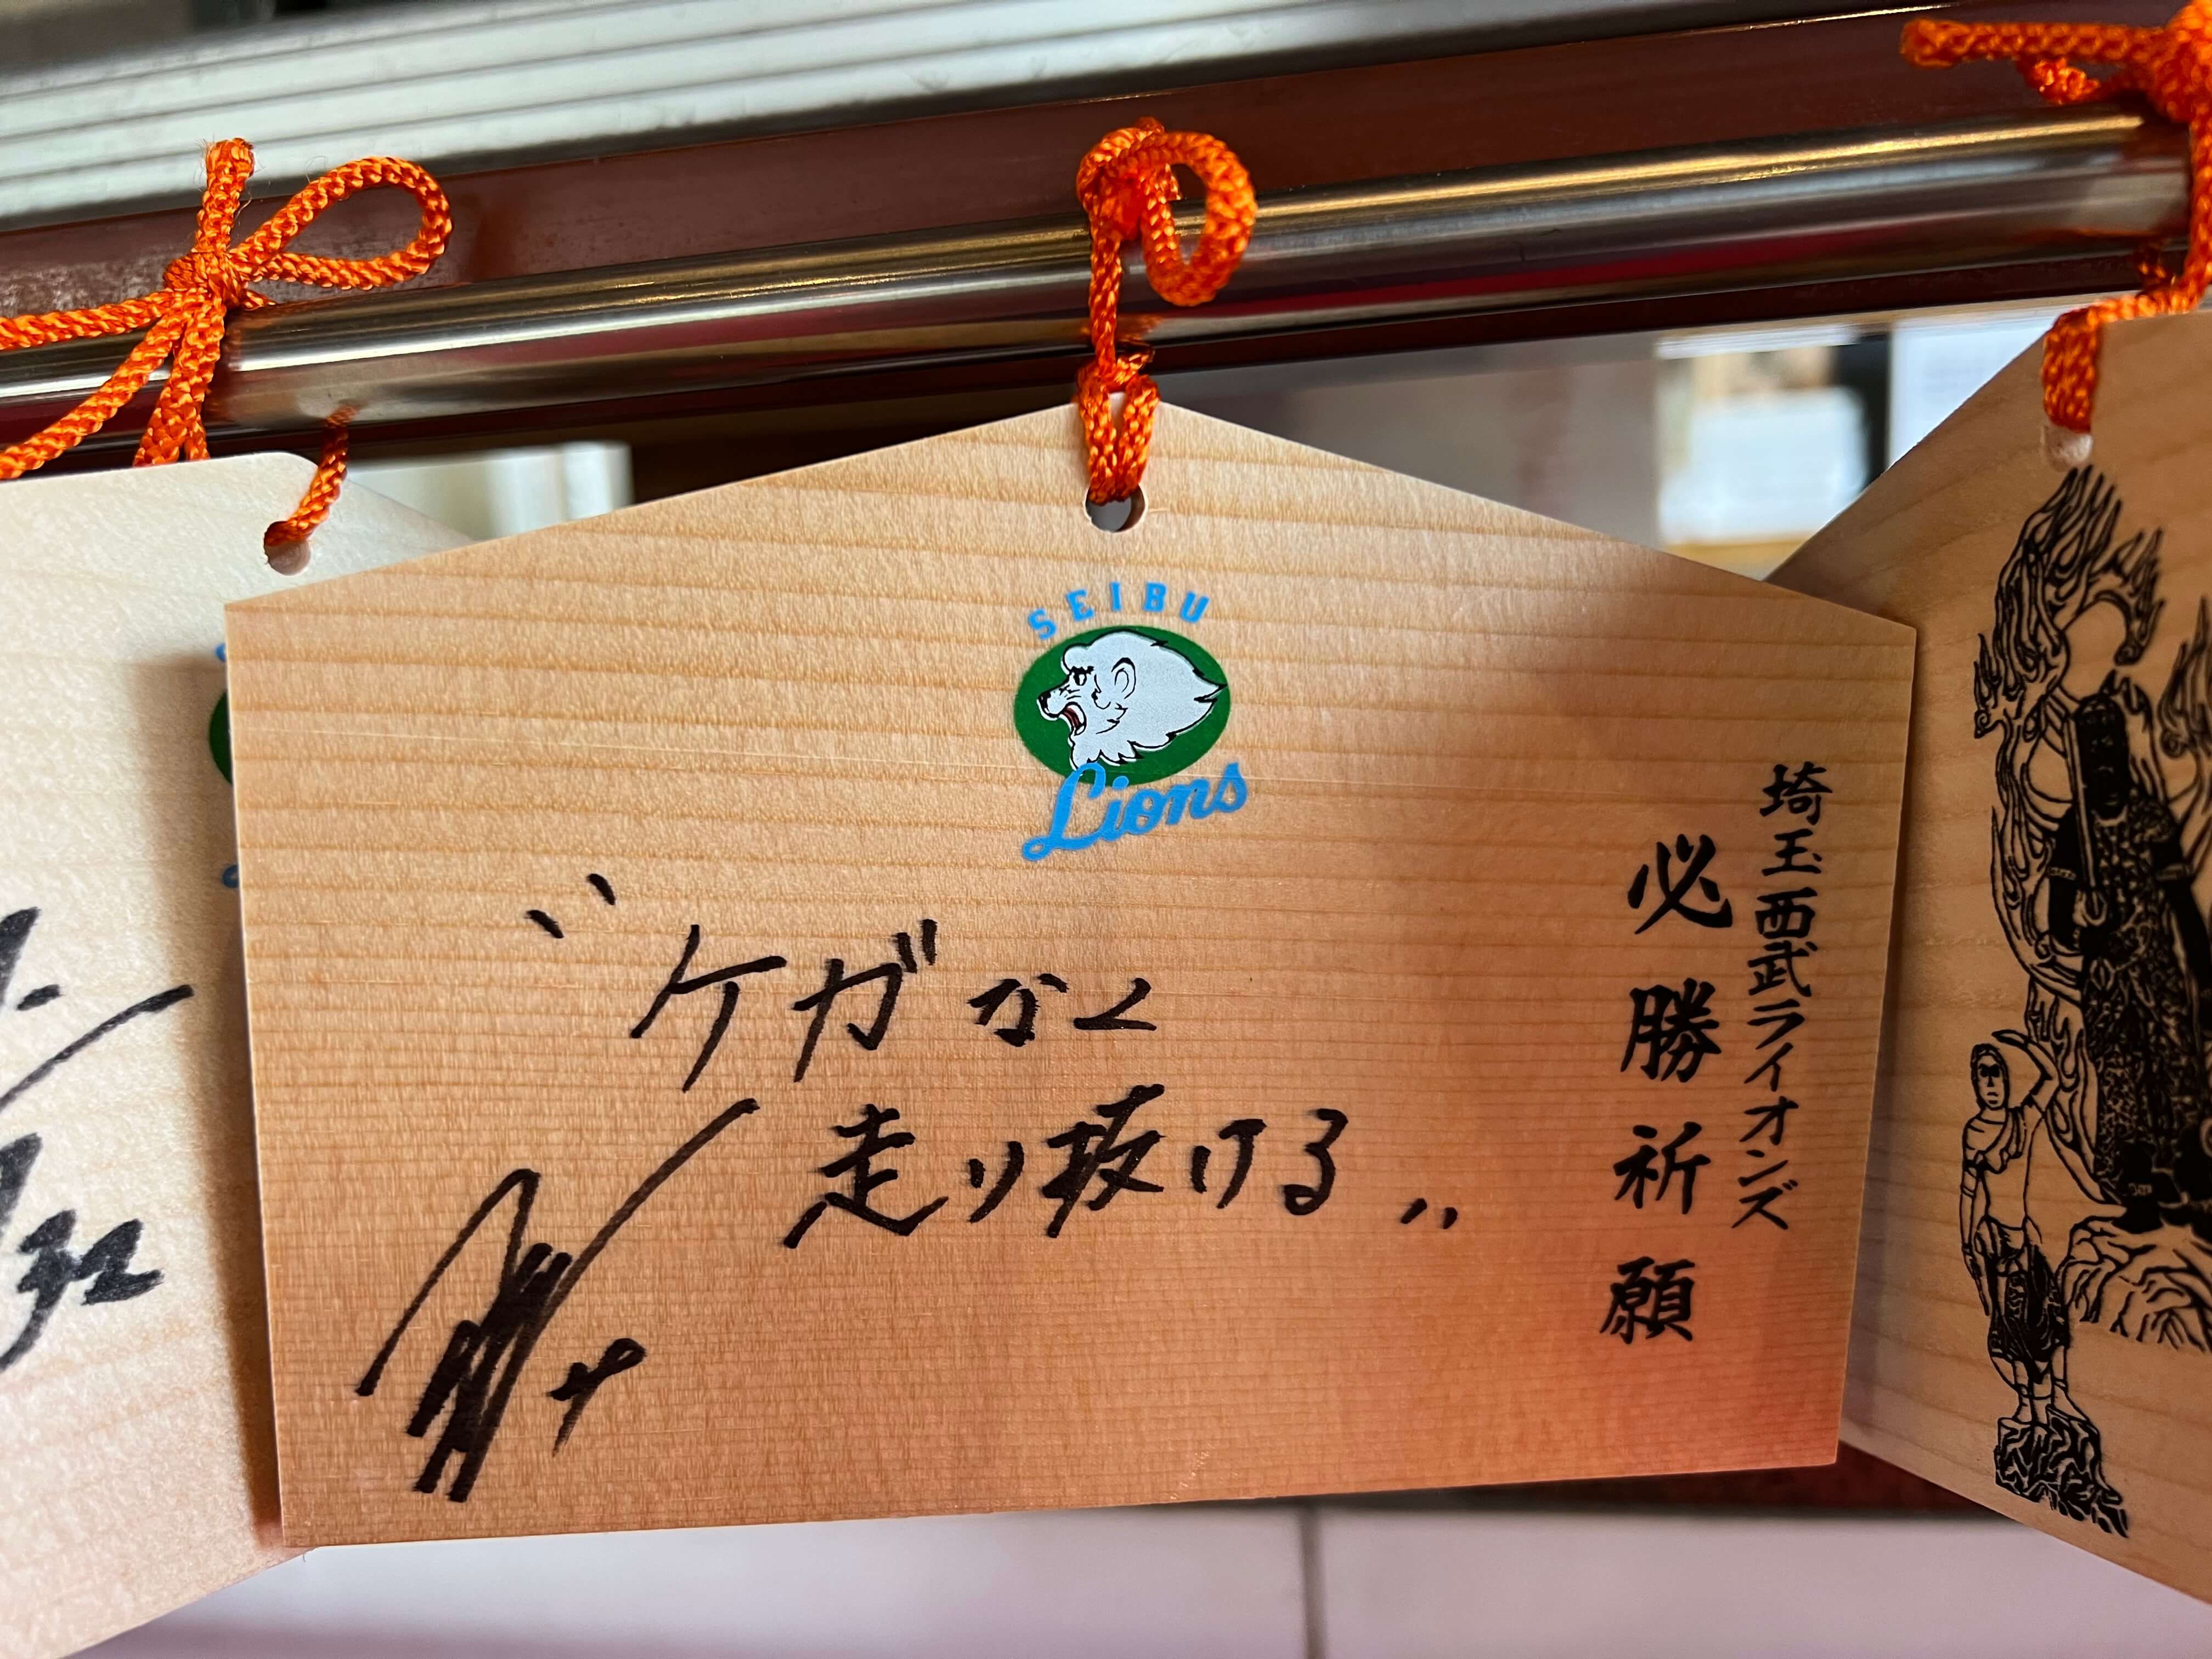 SEIBU
Lions
埼玉西武ライオンズ
必勝祈願
〝ケガなく
走り抜ける〟